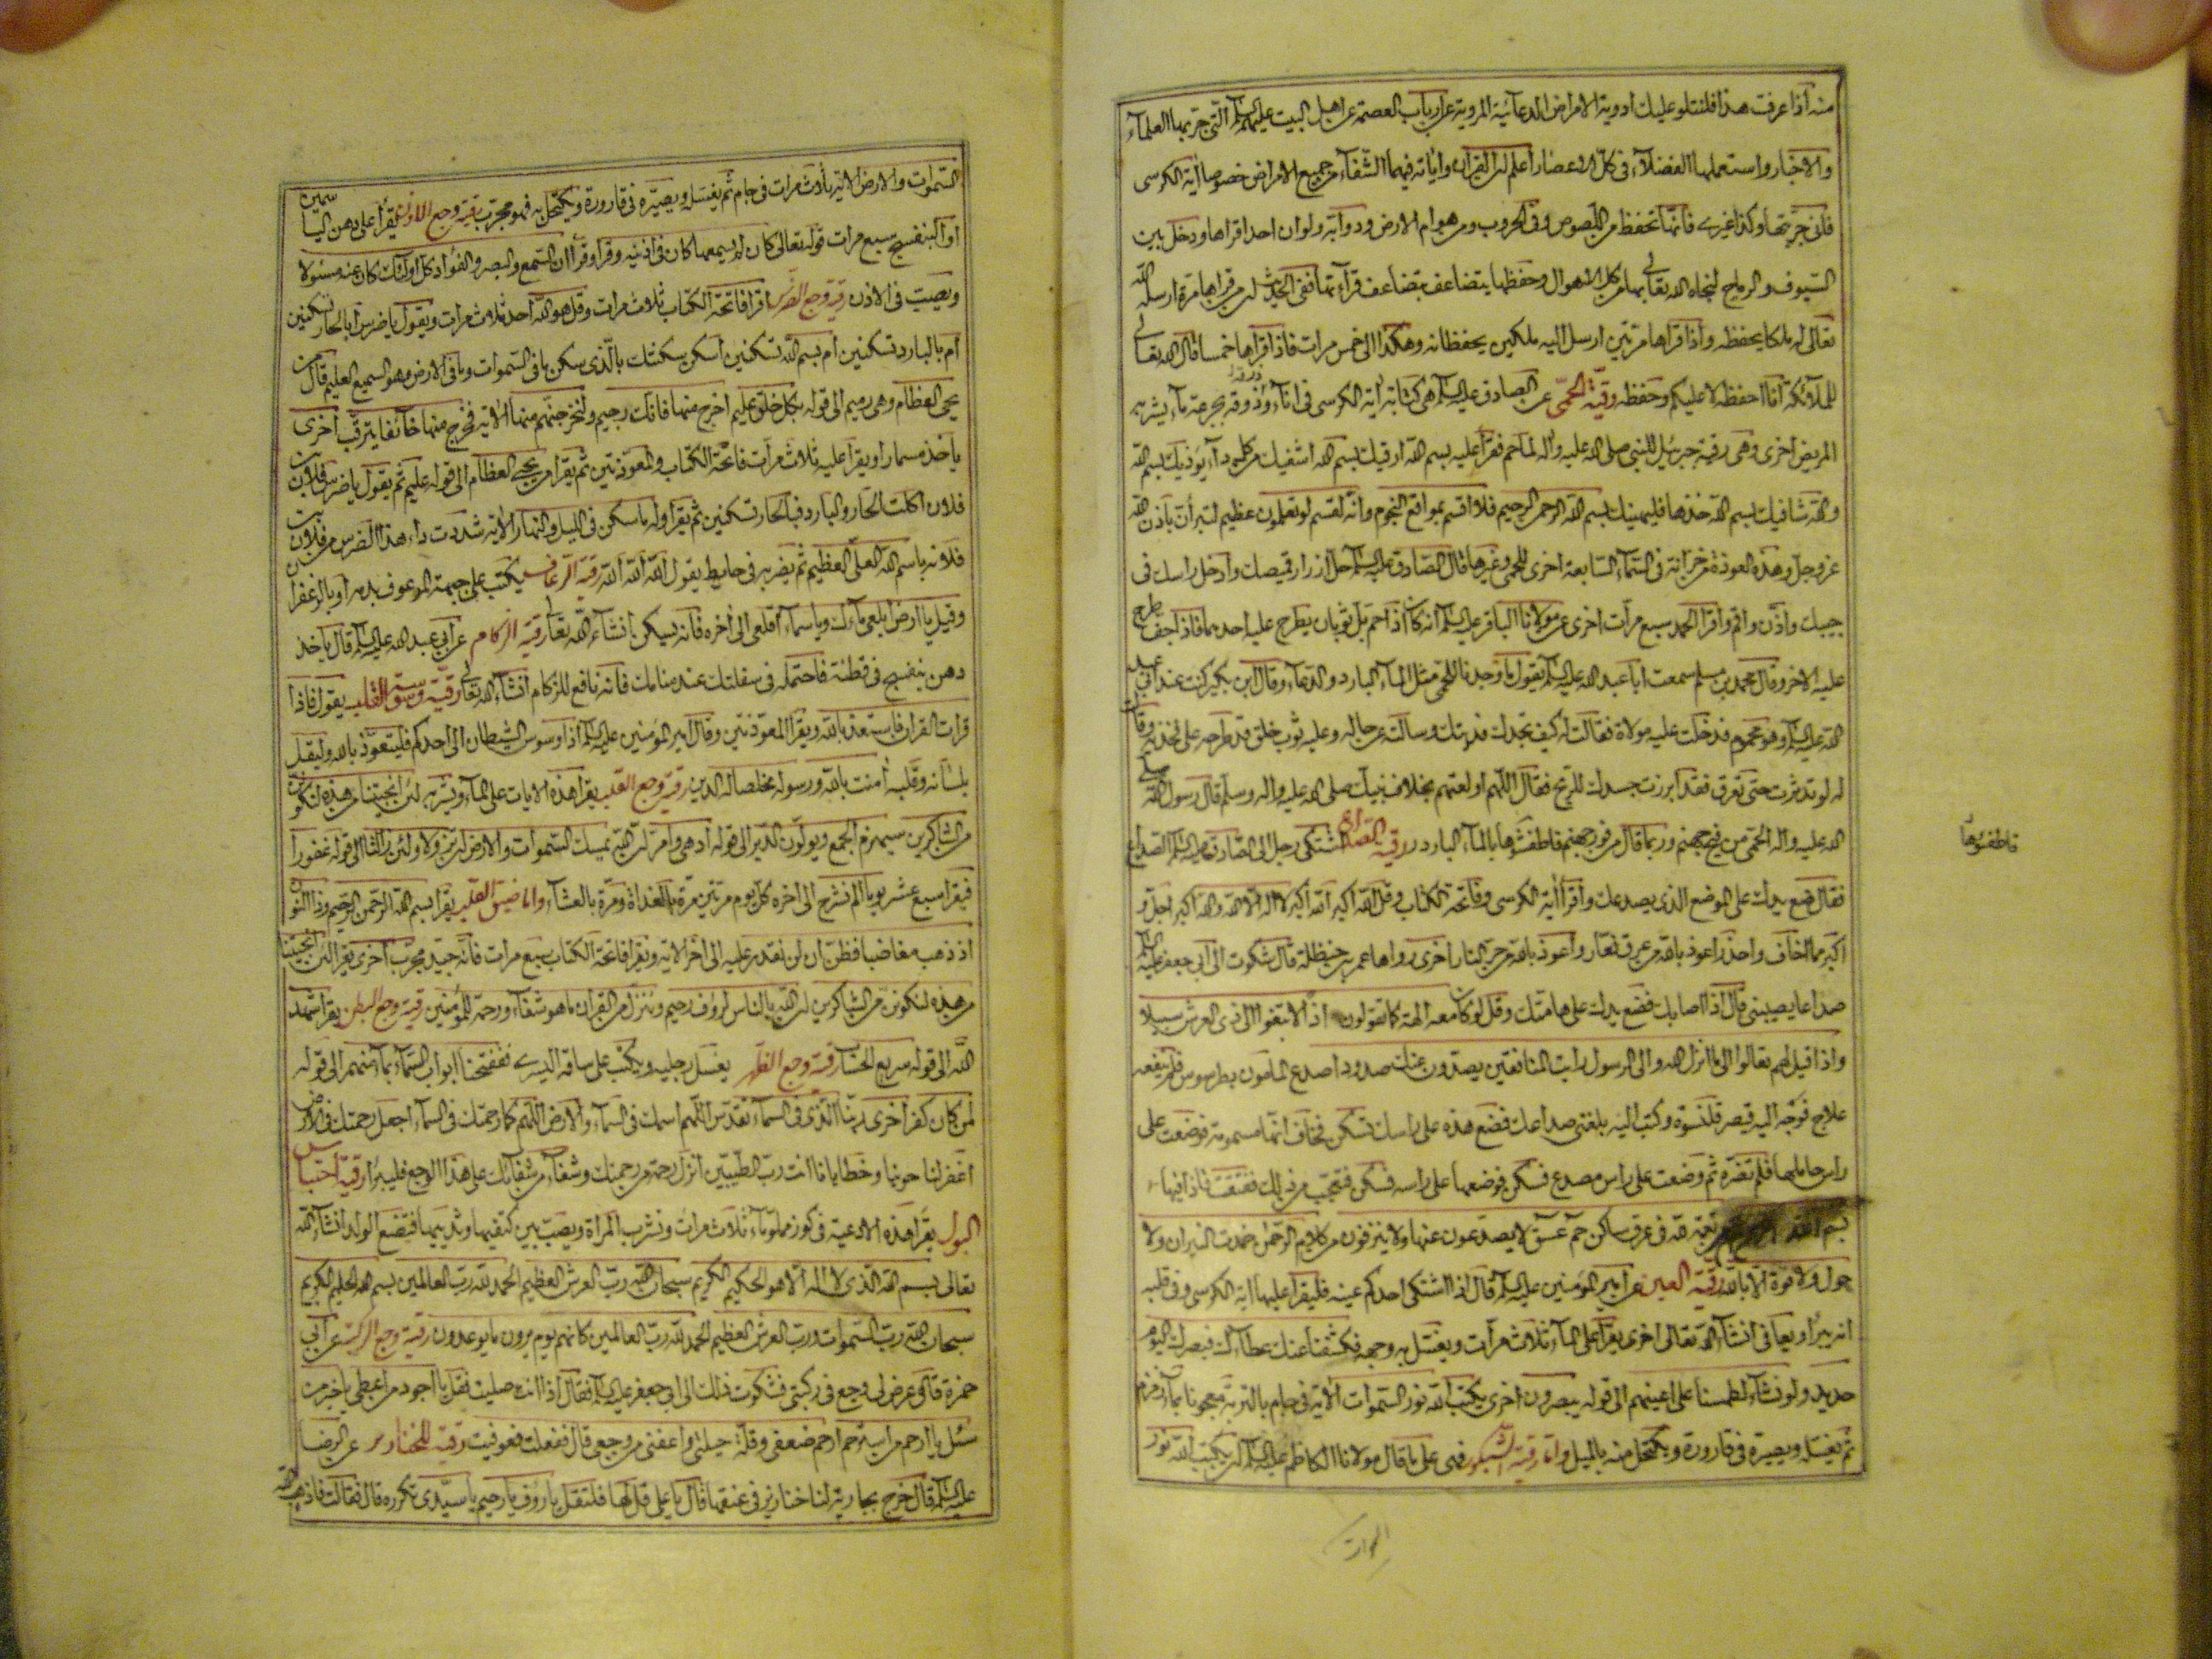 منه اذا عرفت هذا فلنتلو عليك ادوية الامراض الدعائية المروية عن ارباب العصمة عن اهل البيت عليهم السلام التي جربها العلماء
والاخيار واستعملها الفضلاء في كل الاعصار اعلم ان القران واياته فيهما الشفاء من جميع الامراض خصوصا اية الكرسى
فاني جربتها وكذا غيرى فانها تحفظ من اللصوص وفي الحروب ومن هوام الارض ودوابه ولو ان احدا قراها ودخل بين
السيوف والرماح لنجاه الله تعالى بها من كل الاهوال وحفظها يتضاعف بتضاعف قراءتها ففي الحديث ان من قراها مرة ارسل الله
تعالى له ملكا يحفظه واذا قراها مرتين ارسل اليه ملكين يحفظانه وهكذا الى خمس مرات فاذا قراها خمسا قال الله تعالى
للملائكة انا احفظه لا عليكم وحفظه رقية الحمى عن الصادق عليه السلام هى كتابة اية الكرسى فى اناء وذوقه بجرعة ماء يشربه
المريض اخرى وهى رقية جبرئيل للنبي صلى الله عليه واله لما حم فقرأ عليه بسم الله ارقيك بسم الله اشفيك من كل داء يؤذيك بسم الله
والله شافيك بسم الله خذها فليهنيك بسم الله الرحمن الرحيم فلا اقسم بمواقع النجوم وانه لقسم لو تعلمون عظيم لتبرأن باذن الله
عز وجل وهذه العوذة من خزانة فى السماء السابعة اخرى للحمى وغيرها قال الصادق عليه السلام حل ازرار قميصك وادخل راسك فى
جيبك واذن واقم واقرا الحمد سبع مرات اخرى عن مولانا الباقر عليه السلام انه كان اذا حم بل ثوبان يطرح عليه احدهما فاذا جف طرح
عليه الاخر وقال محمد بن مسلم سمعت ابا عبد الله عليه السلام يقول ما وجدنا للحمى مثل الماء البارد والدعاء وقال ابن بكير كنت عند ابي عبد
الله عليه السلام وهو محموم فدخلت عليه مولاة فقالت له كيف تجدك فديتك وسالت عن حاله وعليه ثوب خلق قد طرحه على فخذيه وقالت
له لو تدثرت حتى تعرق فقد ابرزت جسدك للريح فقال اللهم اولعتهم بخلاف نبيك صلى الله عليه واله وسلم قال رسول الله صلى
الله عليه واله الحمى من فيح جهنم وربما قال من فور جهنم فاطفئوها بالماء البارد رقية الصداع اشتكى رجل الى الصادق عليه السلام الصداع
فاطفئوها
فقال ضع يدك على الموضع الذى يصدعك واقرأ اية الكرسى وفاتحة الكتاب وقل الله اكبر الله اكبر لا اله الا الله والله اكبر اجل و
اكبر مما اخاف واحذر اعوذ بالله من عرق نعار واعوذ بالله من حر النار اخرى رواها عمر بن حنظلة قال شكوت الى ابي جعفر عليه السلام
صداعا يصيبنى قال اذا اصابك فضع يدك على هامتك وقل لو كان معه الهة كما تقولون اذا لابتغوا الى ذى العرش سبيلا
واذا قيل لهم تعالوا الى ما انزل الله والى الرسول رايت المنافقين يصدون عنك صدودا صدع المامون بطرسوس فلم ينفعه
علاج فوجه اليه قيصر قلنسوة وكتب اليه بلغنى صداعك فضع هذه على راسك تسكن فخاف انها مسمومة فوضعت على
راس حاملها فلم تضره ثم وضعت على راس مصدع فسكن فوضعها على راسه فسكن فتعجب من ذلك ففتقت فاذا فيها
بسم الله نعمة لله فى عرق ساكن حم عسق لا يصدعون عنها ولا ينزفون من كلام الرحمن خمدت النيران ولا
حول ولا قوة الا بالله رقية العين عن امير المؤمنين عليه السلام قال اذا اشتكى احدكم عينه فليقرأ عليها اية الكرسى وفى قلبه
انه يبرأ ويعافى انشاء الله تعالى اخرى يقرأ على الماء ثلاث مرات ويغسل به وجهه فكشفنا عنك غطاءك فبصرك اليوم
حديد ولو نشاء لطمسنا على اعينهم الى قوله يبصرون اخرى يكتب الله نور السموات الاية فى جام بالتربة معجونا بماء زمزم
ثم يغسله ويصيره فى قارورة ويكتحل منه بالميل واما رقية الشبكور فهى على ما قال مولانا الكاظم عليه السلام ان يكتب الله نور
السموات
السموات والارض الاية ثلاث مرات فى جام ثم يغسله ويصيره فى قارورة ويكتحل به فهو مجرب رقية وجع الاذن يقرأ على دهن الياسمين
او البنفسج سبع مرات قوله تعالى كان لم يسمعها كان فى اذنيه وقرا وقرأ ان السمع والبصر والفؤاد كل اولئك كان عنه مسئولا
ويصب فى الاذن رقية وجع الضرس اقرا فاتحة الكتاب ثلاث مرات وقل هو الله احد ثلاث مرات ويقول يا ضرس ابالحار تسكنين
ام بالبارد تسكنين ام بسم الله تسكنين اسكن سكنتك بالذى سكن ما فى السموات وما فى الارض وهو السميع العليم قال من
يحى العظام وهى رميم الى قوله بكل خلق عليم اخرج منها فانك رجيم ولنخرجنهم منها الاية فخرج منها خائفا يترقب اخرى
ياخذ مسمارا ويقرا عليه ثلاث مرات فاتحة الكتاب والمعوذتين ثم يقرا من يحيى العظام الى قوله عليم ثم يقول يا ضرس فلان بن
فلان اكلت الحار والبارد فبالحار تسكنين ثم يقرا وله ما سكن فى الليل والنهار الاية شددت داء هذا الضرس من فلان بن
فلانه باسم الله العلى العظيم ثم يضربه فى حايط يقول الله الله الله رقية الرعاف يكتب على جبهة المرعوف بدمه او بالزعفران
وقيل يا ارض ابلعى ماءك ويا سماء اقلعى الى اخره فانه يسكن انشاء الله تعالى رقية الزكام عن ابى عبد الله عليه السلام قال ياخذ
دهن بنفسج فى قطنة فاحتمله فى سفلتك عند منامك فانه نافع للزكام انشاء الله تعالى رقية وسوسة القلب يقول فاذا
قرات القران فاستعذ بالله ويقرا المعوذتين وقال امير المؤمنين عليه السلام اذا وسوس الشيطان الى احدكم فليتعوذ بالله وليقل
بلسانه وقلبه امنت بالله ورسوله مخلصا له الدين رقية وجع القلب يقرا هذه الايات على الماء ويشربه لئن انجيتنا من هذه لنكونن
من الشاكرين سيهزم الجمع ويولون الدبر الى قوله ادهى وامر ان الله يمسك السموات والارض ان تزولا ولئن زالتا الى قوله غفورا
فيقرا سبع عشر يوما الم نشرح الى اخره كل يوم مرتين مرة بالغداة ومرة بالعشاء واما ضيق القلب يقرا بسم الله الرحمن الرحيم وذا النون
اذ ذهب مغاضبا فظن ان لن نقدر عليه الى اخر الاية ويقرا فاتحة الكتاب سبع مرات فانه جيد مجرب اخرى يقرا لئن انجيتنا
من هذه لنكونن من الشاكرين ان الله بالناس لرؤف رحيم وننزل من القران ما هو شفاء ورحمة للمؤمنين رقية وجع البطن يقرا شهد
الله الى قوله سريع الحساب رقية وجع الظهر يغسل رجليه ويكتب على ساقه اليسرى ففتحنا ابواب السماء بماء منهمر الى قوله
لمن كان كفر اخرى ربنا الذى فى السماء تقدس اللهم اسمك فى السماء والارض اللهم كما رحمتك فى السماء اجعل رحمتك فى الارض
اغفر لنا حوبنا وخطايانا انت رب الطيبين انزل رحمة من رحمتك وشفاء من شفائك على هذا الوجع فليبرأ رقية احتباس
البول يقرا هذه الادعية فى كوز مملو ماء ثلاث مرات وتشرب المراة ويصب بين كتفيها وثدييها فتضع الولد انشاء الله
تعالى بسم الله الذى لا اله الا هو الحكيم الكريم سبحان الله رب العرش العظيم الحمد لله رب العالمين بسم الله الحليم الكريم
سبحان الله رب السموات ورب العرش العظيم الحمد لله رب العالمين كانهم يوم يرون ما يوعدون رقية وجع الركبة عن ابى
حمزة قال عرض لى وجع فى ركبتى فشكوت ذلك الى ابى جعفر عليه السلام فقال اذا انت صليت فقل يا اجود من اعطى يا خير من
سئل يا ارحم من استرحم ارحم ضعفى وقلة حيلتى واعفنى من وجعى قال ففعلت فعوفيت رقية للخنازير عن الرضا
عليه السلام قال خرج بجارية لنا خنازير فى عنقها قال يا على قل لها فلتقل يا رؤف يا رحيم يا سيدى تكرره قال فقالت فاذهب الله